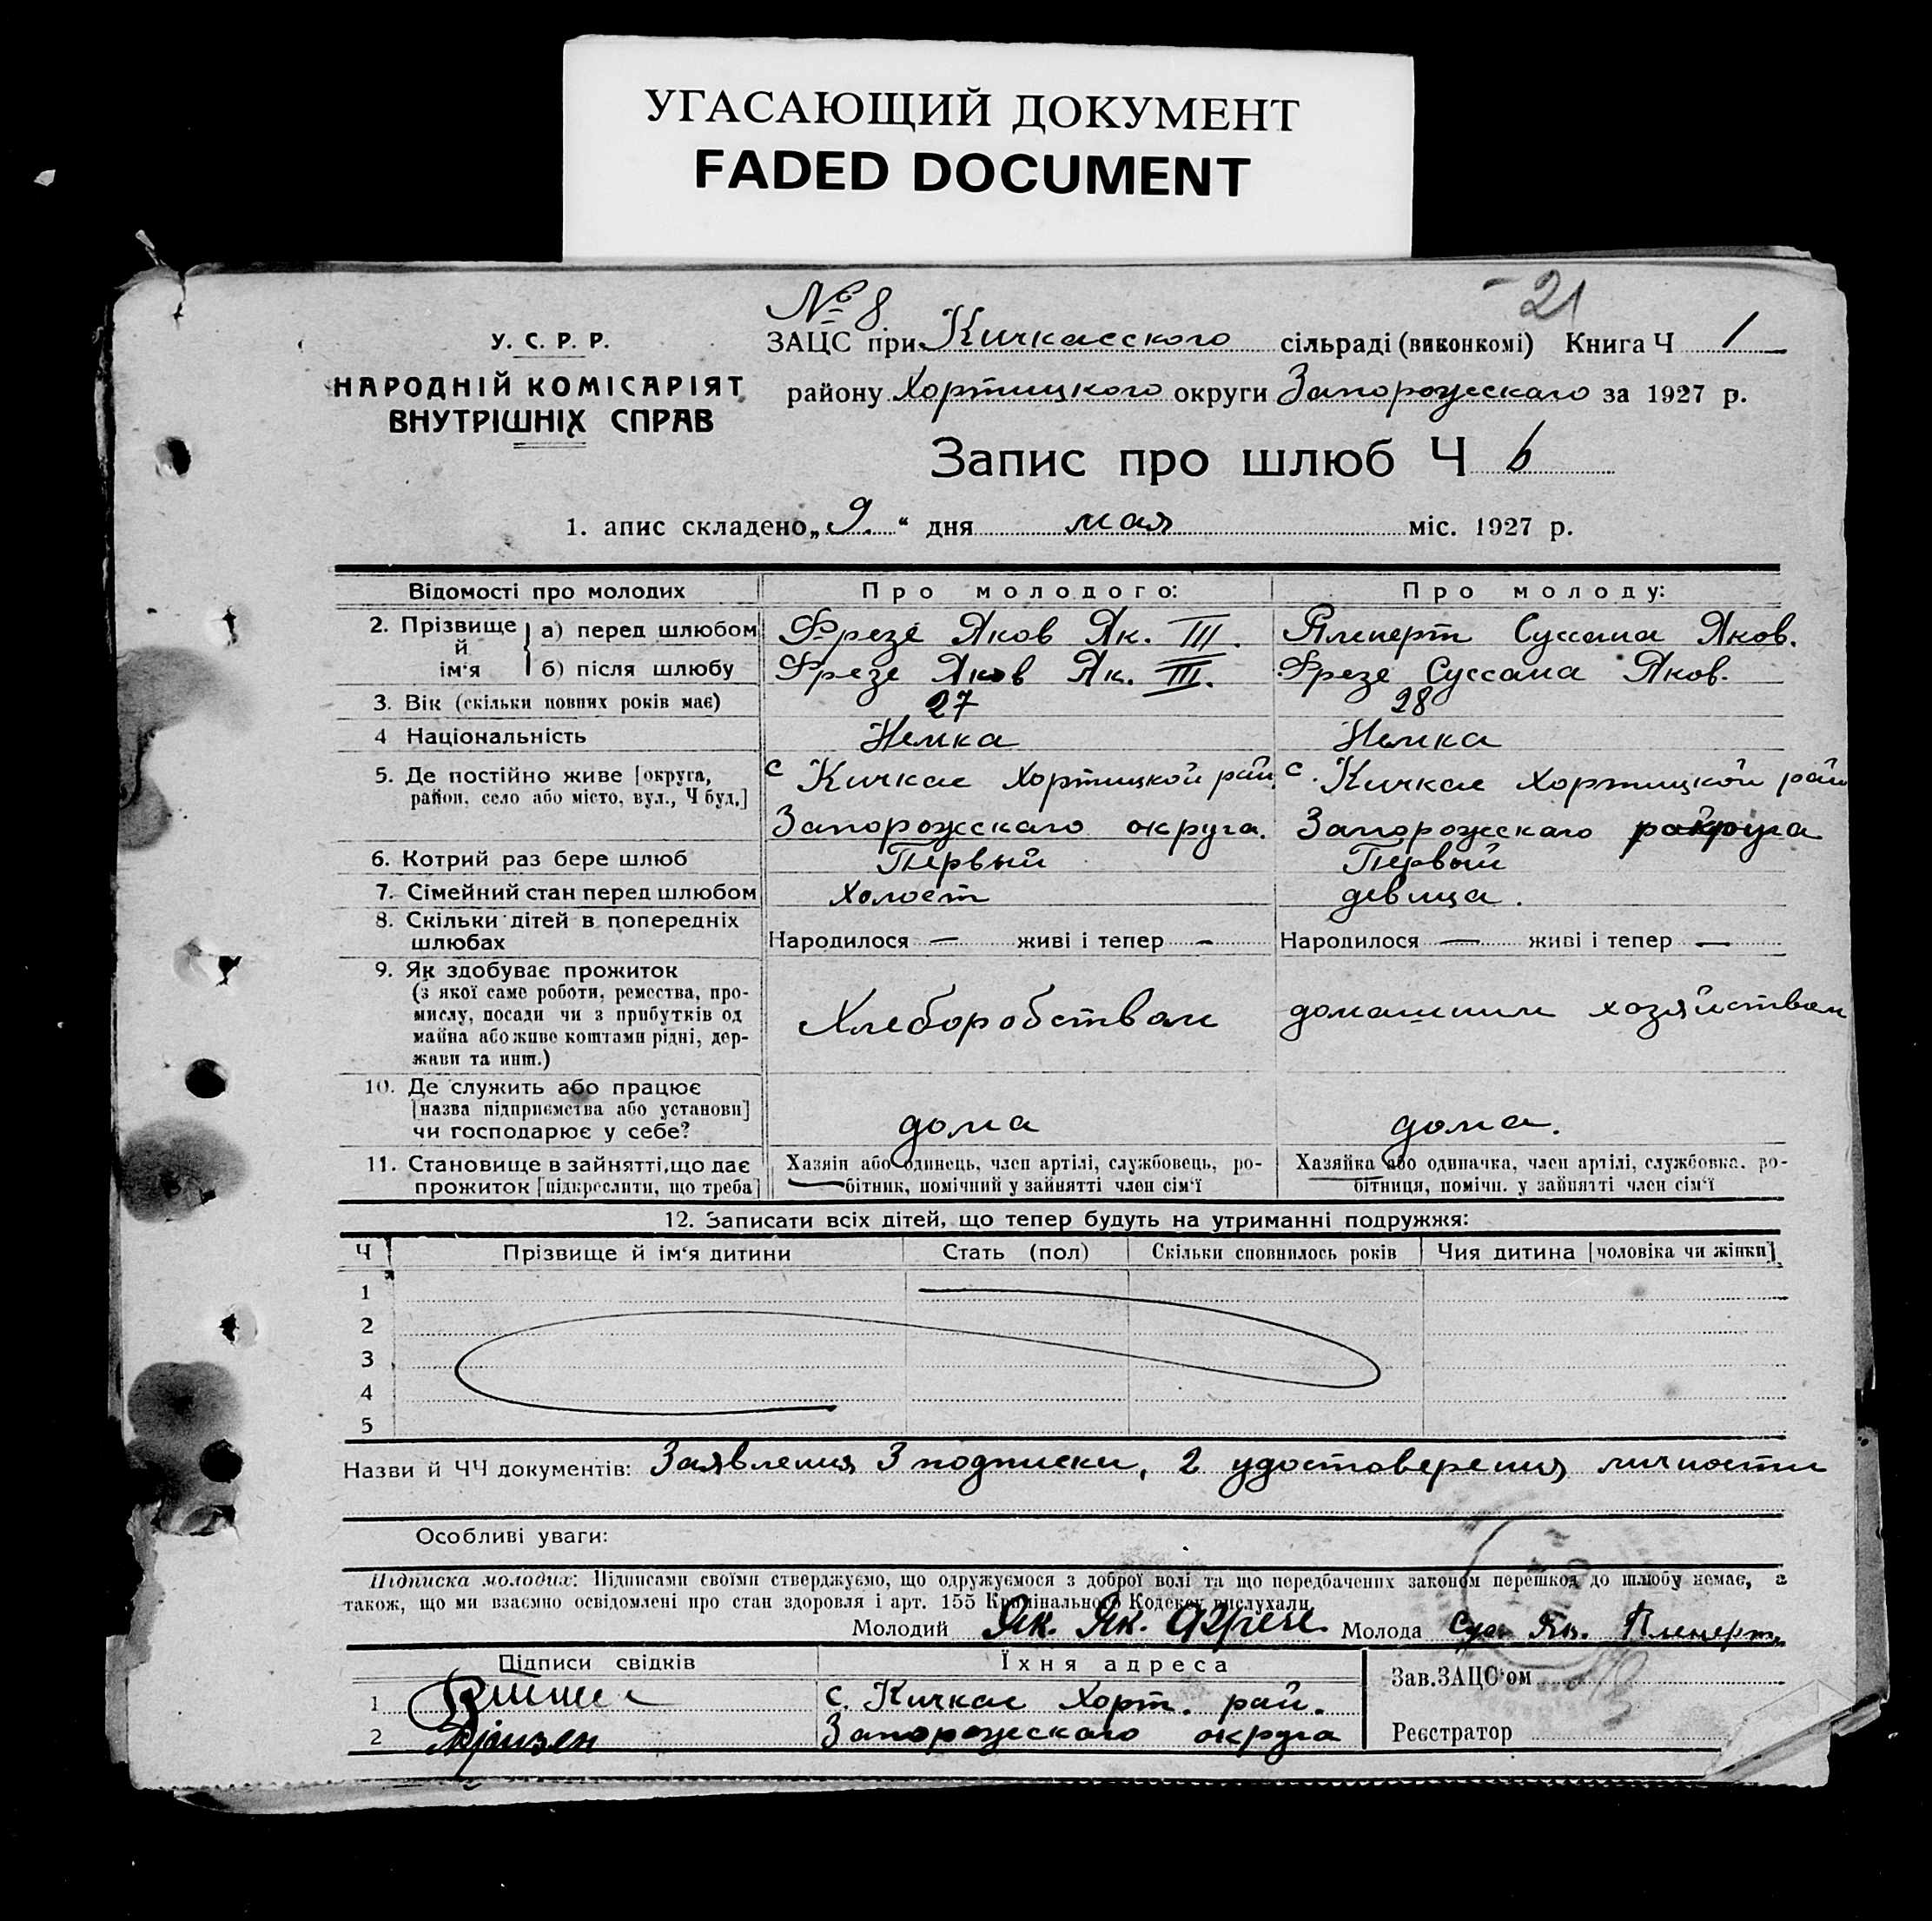 УГАСАЮЩИЙ ДОКУМЕНТ
FADED DOCUMENT
№ 8
21
У. С. Р. Р.
НАРОДНІЙ КОМІСАРІЯТ
ВНУТРІШНІХ СПРАВ
ЗАЦС при Кичкасского сільраді (виконкомі) Книга Ч 1
району Хортицкого округи Запорожскаго за 1927 р.
Запис про шлюб Ч 6
1. апис складено „9.“ дня мая міс. 1927 р.
Відомості про молодих Про молодого: Про молоду:
2. Прізвище й ім‘я а) перед шлюбом Фрезе Яков Як. III. Пленерт Суссана Яков.
б) після шлюбу Фрезе Яков Як. III. Фрезе Суссана Яков.
3. Вік (скільки повних років має) 27 28
4 Національність Немка Немка
5. Де постійно живе [округа, район, село або місто, вул., Ч буд.] с Кичкас Хортицкой рай. с. Кичкас Хортицкой рай
Запорожскаго округа. Запорожскаго округа
6. Котрий раз бере шлюб Первый Первый
7. Сімейний стан перед шлюбом Холост девица.
8. Скільки дітей в попередніх шлюбах Народилося — живі і тепер - Народилося — живі і тепер —
9. Як здобуває прожиток
(з якої саме роботи, ремества, про-
мислу, посади чи з прибутків од
майна або живе коштами рідні, дер-
жави та инш.)
Хлеборобствам домашним хозяйствам
10. Де служить або працює
[назва підприємства або установи]
чи господарює у себе?
дома дома.
11. Становище в зайнятті, що дає
прожиток [підкреслити, що треба]
Хазяін або одинець, член артілі, службовець, ро-
бітник, помічний у зайнятті член сім‘ї
Хазяйка або одиначка, член артілі, службовка. ро-
бітниця, помічн. у зайнятті член сім‘ї
12. Записати всіх дітей, що тепер будуть на утриманні подружжя:
Ч Прізвище й ім‘я дитини Стать (пол) Скільки сповнилось років Чия дитина [чоловіка чи жінки]
1
2
3
4
5
Назви й ЧЧ документів: Заявления 3 подписки, 2 удостоверения личности
Особливі уваги:
Підписка молодих: Підписами своїми стверджуємо, що одружуємося з доброї волі та що передбачених законом перешкод до шлюбу немає, а
також, що ми взаємно освідомлені про стан здоровля і арт. 155 Кримінального Кодексу вислухали.
Молодий Як. Як. Фрезе Молода Сус. Як. Пленерт
Підписи свідків Їхня адреса Зав. ЗАЦС‘ом
1 с. Кичкас Хорт. рай.
2 Запорожскаго округа Реєстратор